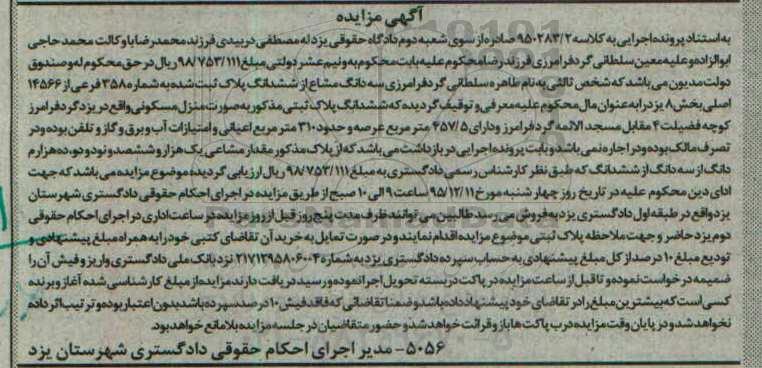 آگهی مزایده
به استناد پرونده اجرایی به کلاسه ۹۵۰۲۸۳/۲ صادره از سوی شعبه دوم دادگاه حقوقی یزد له مصطفی دربیدی فرزند محمدرضا با وکالت محمد حاجی
ابوالزاده و علیه معین سلطانی گردفرامرزی فرزند رضا محکوم علیه بابت محکوم به و نیم عشر دولتی مبلغ ۹۸/۷۵۳/۱۱۱ ریال در حق محکوم له و صندوق
دولت مدیون می باشد که شخص ثالثی به نام طاهره سلطانی گردفرامرزی سه دانگ مشاع از ششدانگ پلاک ثبت شده به شماره ۳۵۸ فرعی از ۱۴۵۶۶
اصلی بخش ۸ یزد را به عنوان مال محکوم علیه معرفی و توقیف گردیده که ششدانگ پلاک ثبتی مذکور به صورت منزل مسکونی واقع در یزد گردفرامرز
کوچه فضیلت ۴ مقابل مسجد الائمه گردفرامرز و دارای ۴۵۷/۵ متر مربع عرصه و حدود ۳۱۰ متر مربع اعیانی و امتیازات آب و برق و گاز و تلفن بوده و در
تصرف مالک بوده و در اجاره نمی باشد و بابت پرونده اجرایی در بازداشت می باشد که از پلاک مذکور مقدار مشاعی یک هزار و ششصد و نود و دو، ده هزارم
دانگ از سه دانگ از ششدانگ که طبق نظر کارشناس رسمی دادگستری به مبلغ ۹۸/۷۵۳/۱۱۱ ریال ارزیابی گردیده موضوع مزایده می باشد که جهت
ادای دین محکوم علیه در تاریخ روز چهارشنبه مورخ ۹۵/۱۲/۱۱ ساعت ۹ الی ۱۰ صبح از طریق مزایده در اجرای احکام حقوقی دادگستری شهرستان
یزد واقع در طبقه اول دادگستری یزد به فروش می رسد طالبین می توانند ظرف مدت پنج روز قبل از روز مزایده در ساعات اداری در اجرای احکام حقوقی
دوم یزد حاضر و جهت ملاحظه پلاک ثبتی موضوع مزایده اقدام نمایند و در صورت تمایل به خرید آن تقاضای کتبی خود را به همراه مبلغ پیشنهادی و
تودیع مبلغ ۱۰ درصد از کل مبلغ پیشنهادی به حساب سپرده دادگستری یزد به شماره ۲۱۷۱۲۹۵۸۰۶۰۰۴ نزد بانک ملی دادگستری واریز و فیش آن را
ضمیمه درخواست نموده و تا قبل از ساعت مزایده در پاکت دربسته تحویل اجرا نموده و رسید دریافت دارند مزایده از مبلغ کارشناسی شده آغاز و برنده
کسی است که بیشترین مبلغ را در تقاضای خود پیشنهاد داده باشد و ضمنا تقاضائی که فاقد فیش ۱۰ درصد سپرده باشد بدون اعتبار بوده و ترتیب اثر داده
نخواهد شد و در پایان وقت مزایده درب پاکت ها باز و قرائت خواهد شد و حضور متقاضیان در جلسه مزایده بلامانع خواهد بود.
۵۰۵۶- مدیر اجرای احکام حقوقی دادگستری شهرستان یزد